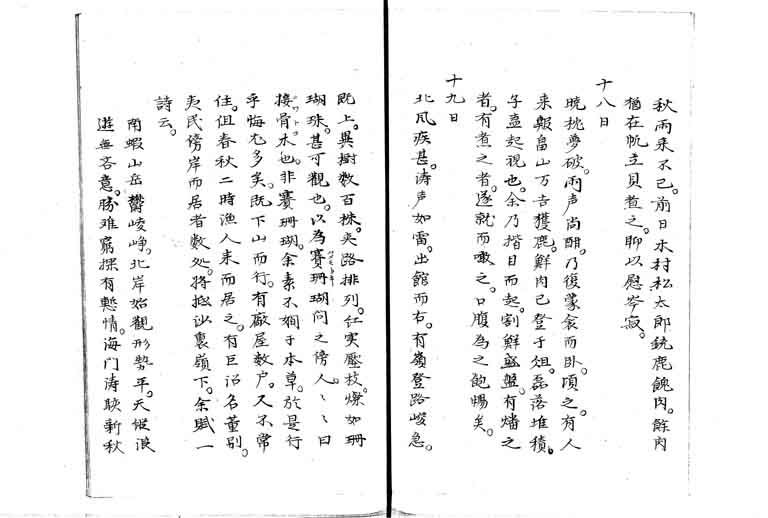 秋雨未不已。前日木村私太郎銃鹿餽肉。餘肉
猶在帆立貝煮之。聊以慰岑寂。
十八日
曉枕夢破。雨声尚酣。乃復蒙衾而臥。頃之。有人
来報畠山万吉獲鹿。鮮肉已登于俎。磊落堆積。
子盍起視也。余乃揩目而起。割鮮盛盤。有燔之
者。有煮之者。遂就而噉之。口腹為之飽暢矣。
十九日
北風疾甚。涛声如雷。出館而右。有嶺登路峻急。
既上。異樹数百株。夾路排列。仁実壓枝。燦如珊
瑚珠。甚可觀也。以為賽珊瑚問之傍人。〻〻曰
接骨木也。非賽珊瑚。余素不嫻于本草。於是行
乎悔尤多矣。既下山而行。有廠屋数户。又不常
住。但春秋二時漁人来而居之。有
夷民傍岸而居者数処。将 裏嶺下。余賦一
詩云。
南蝦山岳欝崚崢。北岸始觀形勢平。天催浪
遊無吝意。勝难窮探有慙情。海門涛 新秋